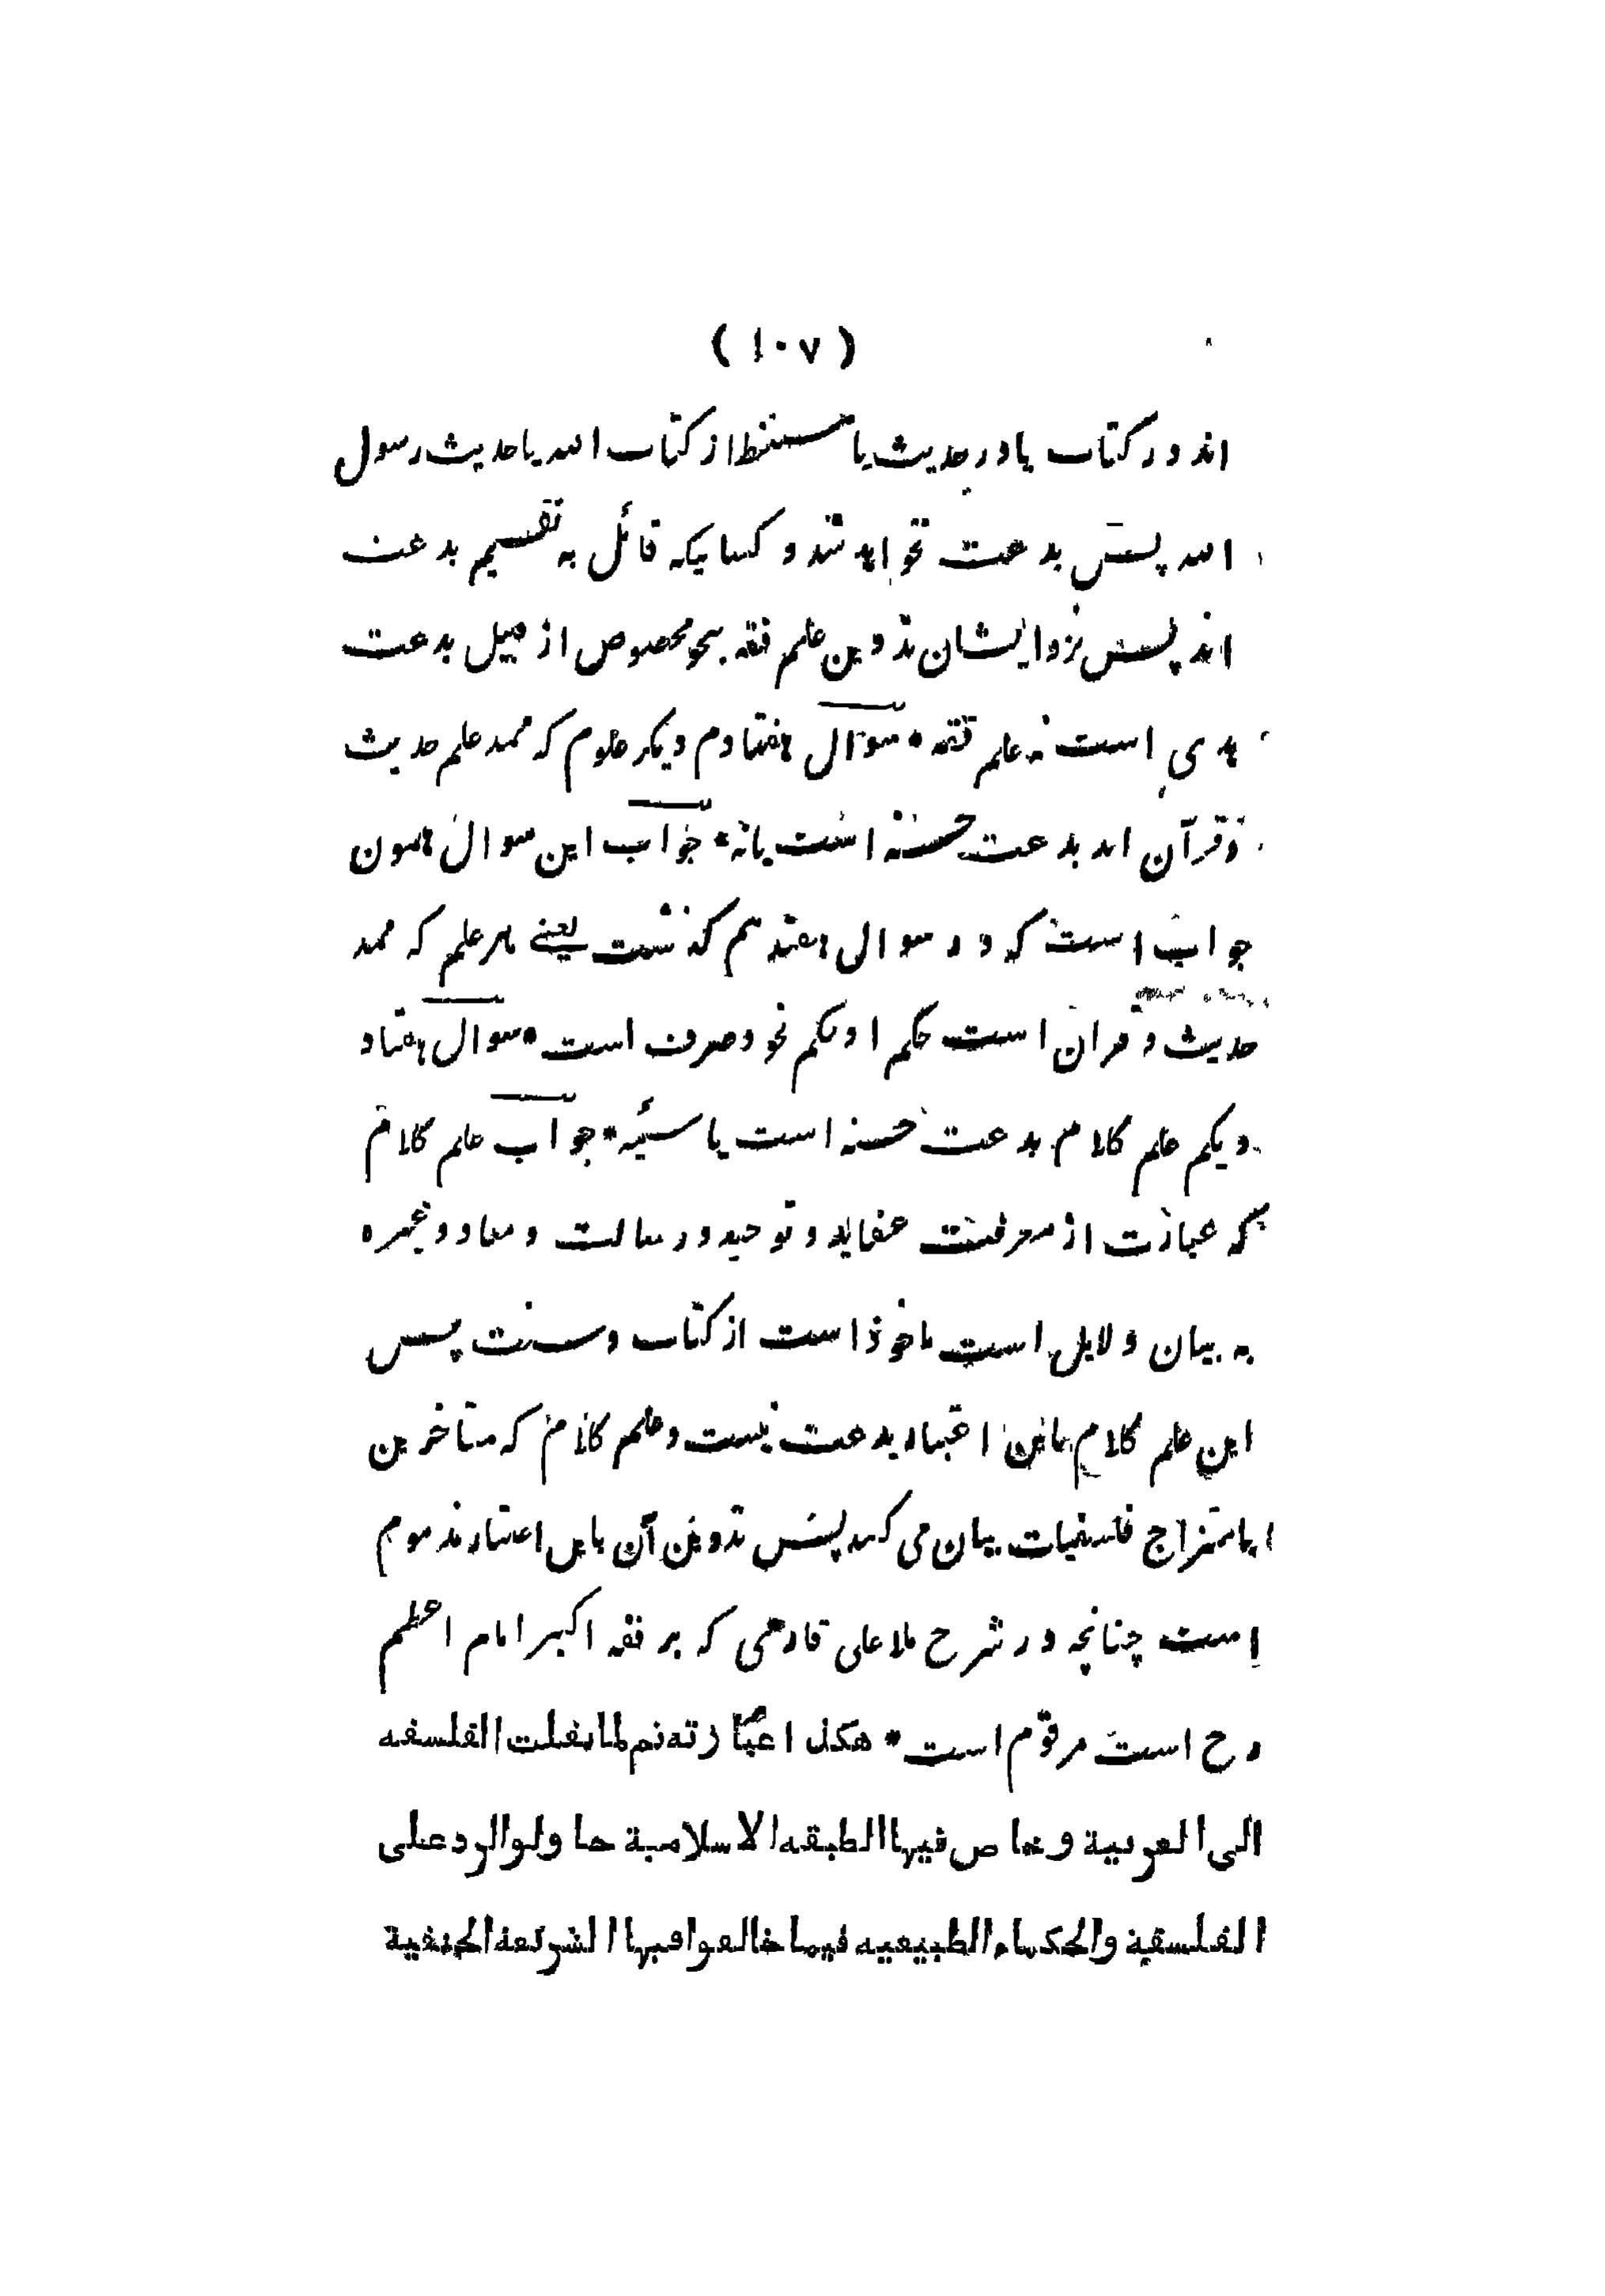 ( ١٠٧ )
اند در کتاب یا در حدیث یا مستنبط از کتاب الله یا حدیث رسول
الله پس بدعت نخواهد شد و کسانیکه قائل به تقسیم بدعت
اند پس نزد ایشان تدوین علم فقه بنحو مخصوص از قبیل بدعت
است نه علم فقه * سوال هفتادم دیگر علوم که ممد علم حدیث
و قرآن اند بدعت حسنه است یا نه * جواب این سوال همون
جواب است که در سوال هفتدهم گذشت یعنے هر علم که ممد
حدیث و قرآن است حکم او حکم نحو و صرف است * سوال هفتاد
و یکم علم کلام بدعت حسنه است یا سئیه * جواب علم کلام
که عبارت از معرفت عقاید و توحید و رسالت و معاد و غیره
به بیان دلایل است ماخوذ است از کتاب و سنت پس
این علم کلام باین اعتبار بدعت نیست و علم کلام که متأخرین
بامتزاج فلسفیات بیان می کنند پس تدوین آن باین اعتبار مذموم
است چنانچه در شرح ملا علی قاری که بر فقه اکبر امام اعظم
رح است مرقوم است * هکذا عبارته ثم لما نقلت الفلسفه
الی العربیة و خاص فیها الطبقه الاسلامیة حاولوا الرد علی
الفلسفیة والحکماء الطبیعیه فیما خالفوا فیها الشریعة الحنفیة